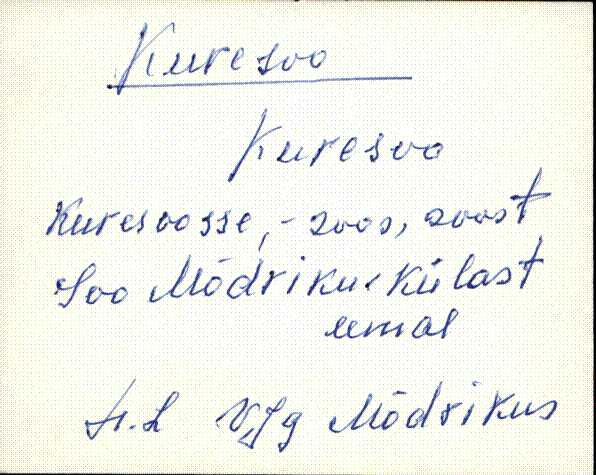 Kuresoo
Kuresoo
Kuresoosse, -soos, soost
Soo Mõdriku külast
eemal
VJg Mõdrikus